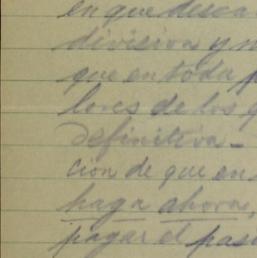 en que desca
division y m
que en toda p
lores de los g
definitiva-
cion de que en
haga ahora,
pagar el pasi